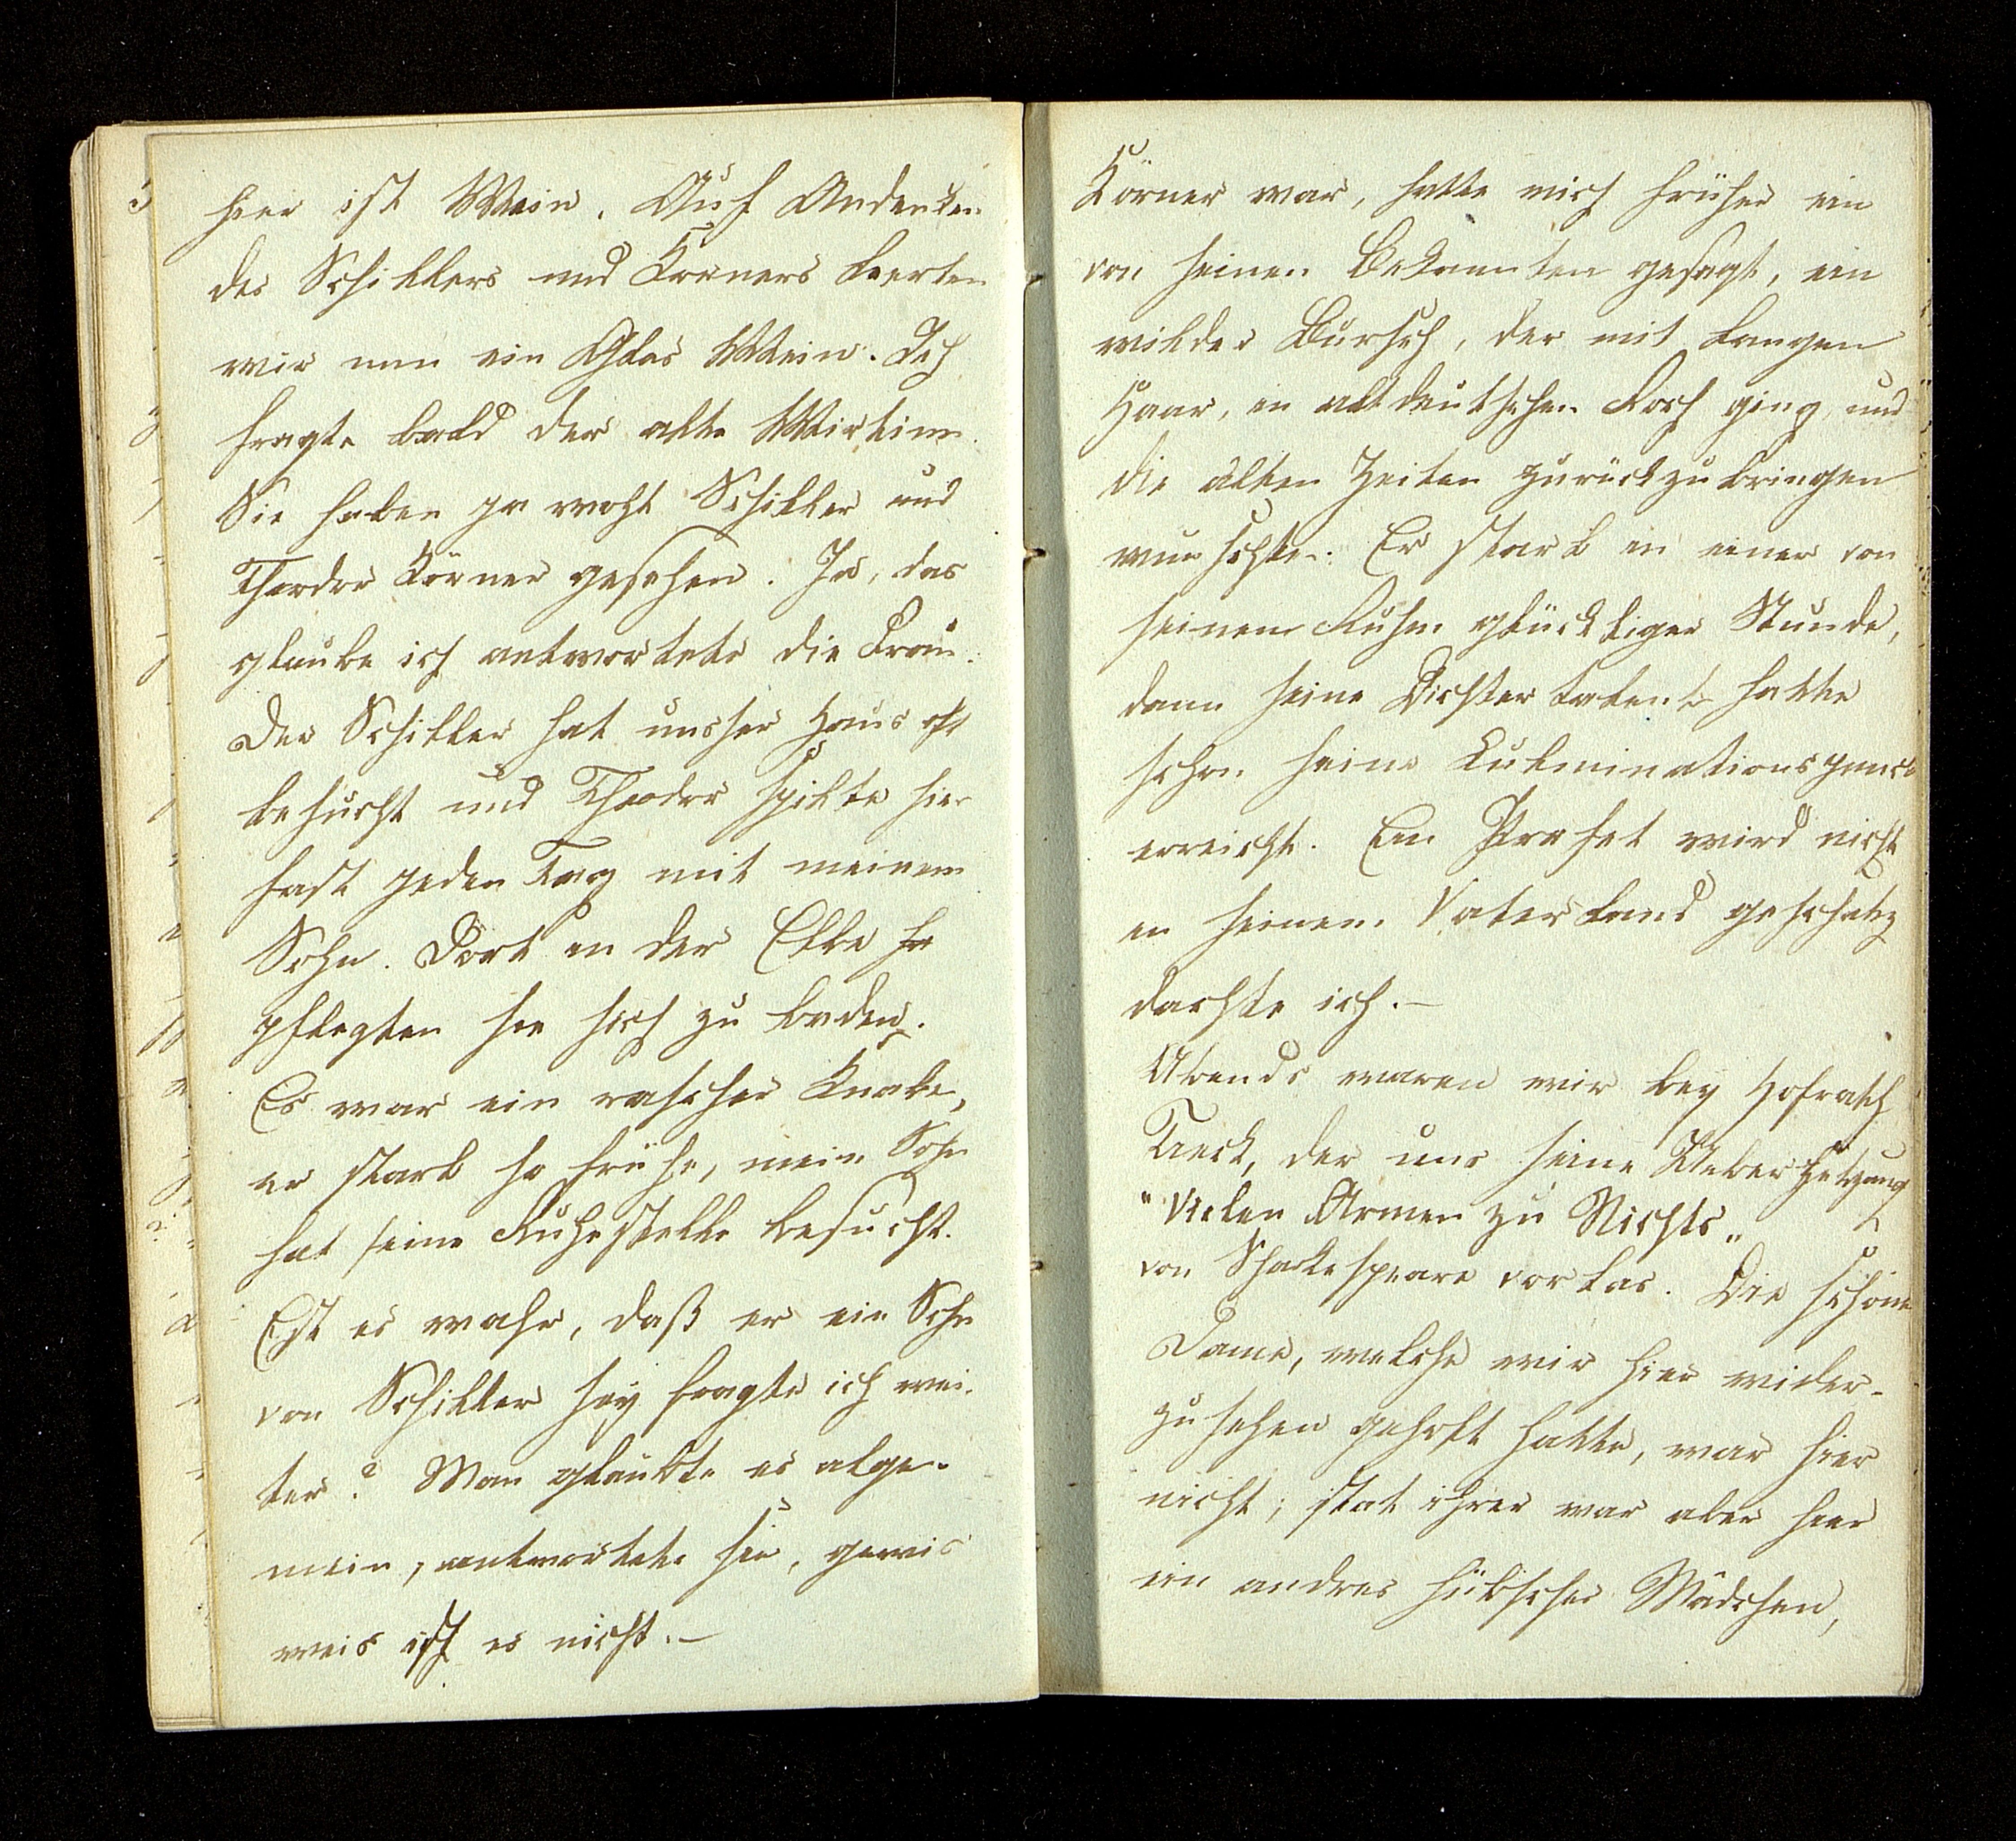 hier ist Wein. Auf Andenken
des Schillers und Körners leerten
wir nun ein Glas Wein. Ich
fragte bald der alte Wirtinn.
Sie haben ja wohl Schiller und
Theodor Körner gesehen. Ja, das
glaube ich antwortete die Frau.
Der Schiller hat unsser Haus oft
besucht und Theodor spilte hier
fast jeden Tag mit meinem
Sohn. Dort in der Elbe so
pflegten sie sich zu baden.
Es war ein rascher Knabe,
er starb so frühe, mein Sohn
hat seine Ruhestelle besucht.
Ist es wahr, daß er ein Sohn
von Schiller sey fragte ich wei-
ter? Man glaubte es alge-
mein, antwortete sie, gewis
weis ist es nicht. –
Körner war, hatte mich früher ein
von seinen Bekannten gesagt, ein
wilder Bursch, der mit langen
Haar, in altdeutschen Rock ging und
die alten Zeiten zurückzubringen
wunschte. Er starb in einer von
seinem Ruhm glücktiger Stunde,
dann seine Dichter talent hatte
schon seine Culminationspunct
erreicht. Ein Profet wird nicht
in seinem Vaterland geschatz
dachte ich. –
Abends waren wir bey Hofrath
Tieck, der uns seine Uebersetzung
"Vielen Armen zu Nichts„
von Shakespeare vorlas. Die schöne
Dame, welche wir hier wider-
zusehen gehoft hatte, war hier
nicht; stat ihrer war aber hier
ein andres hübsches Mädchen,